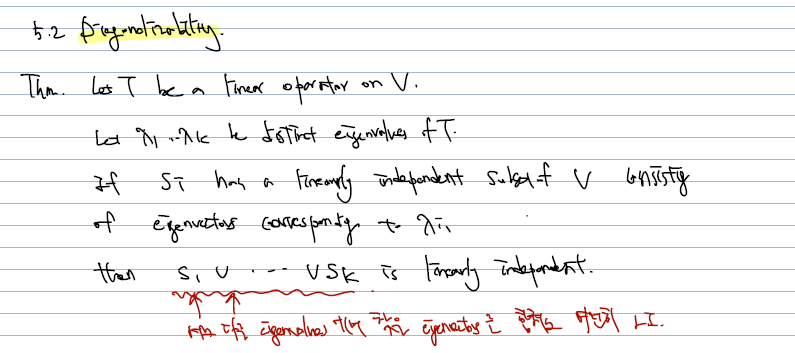 5.2 Diagonalizability.
Thm. Let T be a linear operator on V.
Let λ1 ... λk be distinct eigenvalues of T.
If Si has a linearly independent subset of V consisting
of eigenvectors corresponding to λi,
then S1 ∪ ... ∪ Sk is linearly independent.
서로 다른 eigenvalues eigenvectors LI.